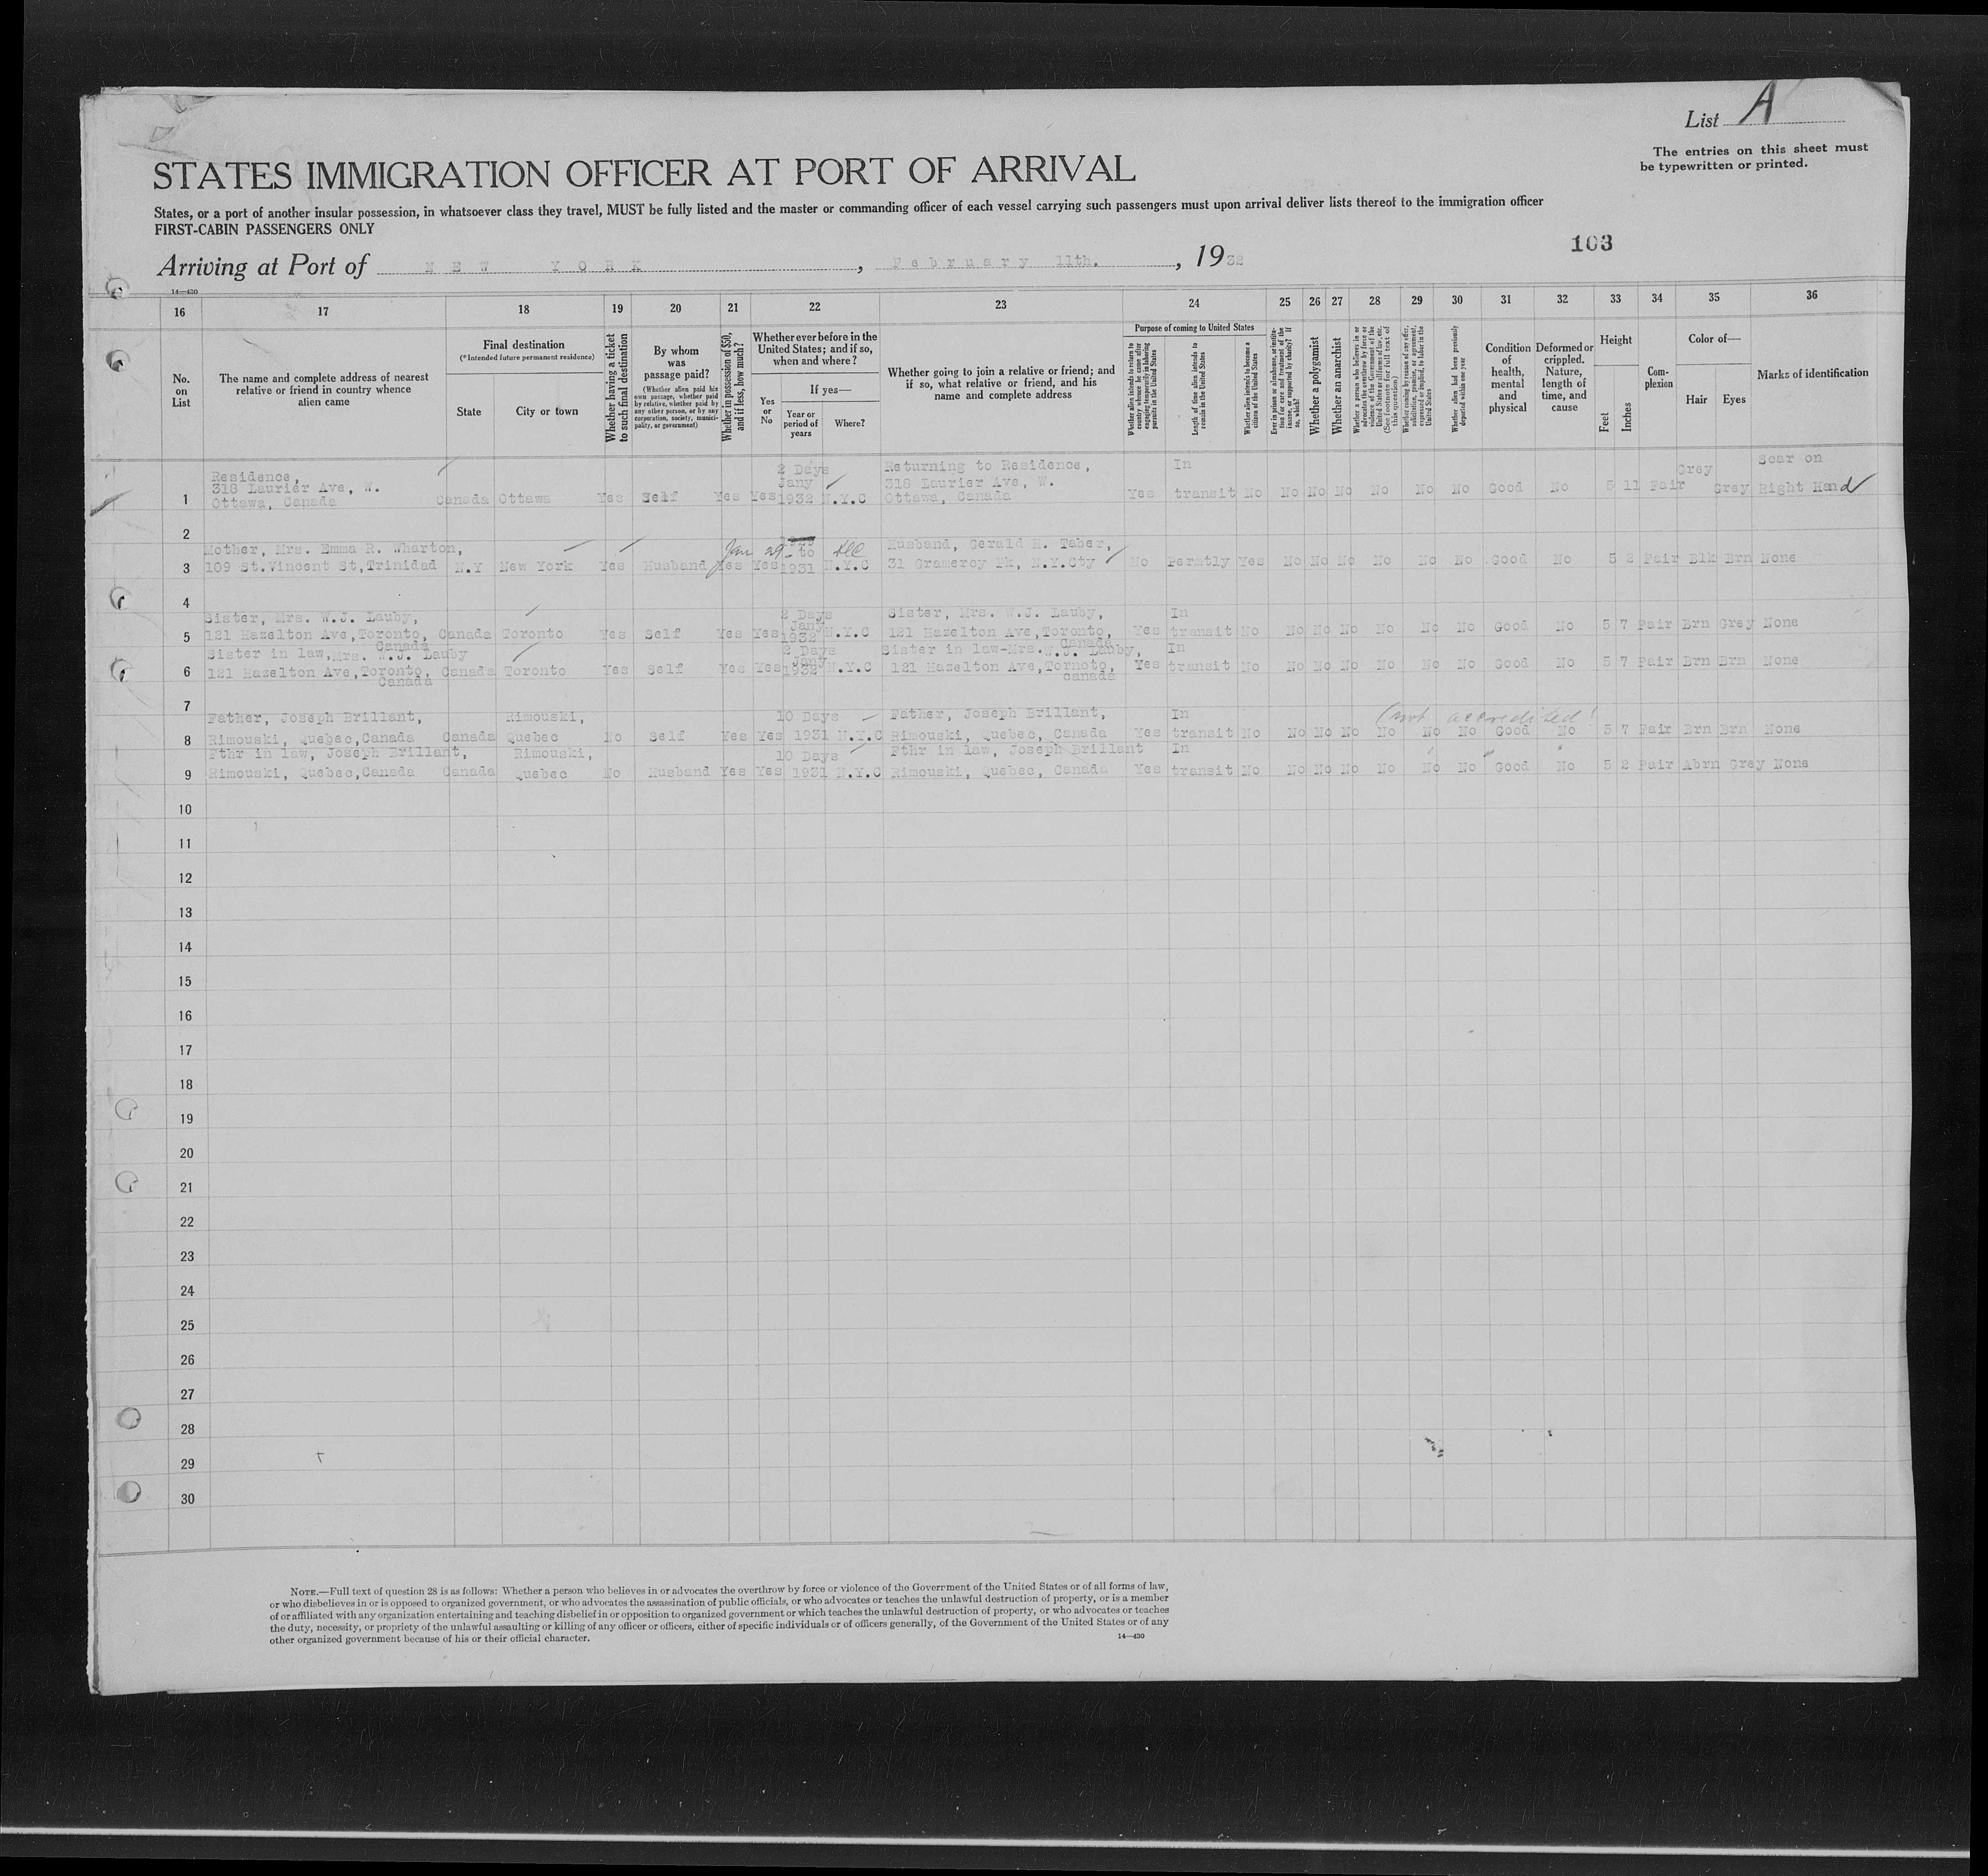 List A
The entries on this sheet must
be typewritten or printed.
STATES IMMIGRATION OFFICER AT PORT OF ARRIVAL
States, or a port of another insular possession, in whatsoever class they travel, MUST be fully listed and the master or commanding officer of each vessel carrying such passengers must upon arrival deliver lists thereof to the immigration officer
FIRST-CABIN PASSENGERS ONLY
103
Arriving at Port of NEW YORK, February 11th., 1932
14—430
16 17 18 19 20 21 22 23 24 25 26 27 28 29 30 31 32 33 34 35 36
No. on List
The name and complete address of nearest relative or friend in country whence alien came
Final destination
(*Intended future permanent residence)
State
City or town
Whether having a ticket to such final destination
By whom was passage paid?
(Whether alien paid his own passage, whether paid by relative, whether paid by any other person, or by any corporation, society, municipality, or government)
Whether in possession of $50, and if less, how much?
Whether ever before in the United States; and if so, when and where?
Yes or No
If yes—
Year or period of years
Where?
Whether going to join a relative or friend; and if so, what relative or friend, and his name and complete address
Purpose of coming to United States
Whether alien intends to return to country whence he came after engaging temporarily in laboring pursuits in the United States
Length of time alien intends to remain in the United States
Whether alien intends to become a citizen of the United States
Ever in prison or almshouse, or institution for care and treatment of the insane, or supported by charity? If so, which?
Whether a polygamist
Whether an anarchist
Whether a person who believes in or advocates the overthrow by force or violence of the Government of the United States or all forms of law, etc. (See footnote for full text of this question)
Whether coming by reason of any offer, solicitation, promise, or agreement, expressed or implied, to labor in the United States
Whether alien had been previously deported within one year
Condition of health, mental and physical
Deformed or crippled. Nature, length of time, and cause
Height
Feet
Inches
Complexion
Color of—
Hair
Eyes
Marks of identification
1 Residence, 318 Laurier Ave, W. Ottawa, Canada Canada Ottawa Yes Self Yes Yes 2 Days Jany 1932 N.Y.C Returning to Residence, 318 Laurier Ave, W. Ottawa, Canada Yes In transit No No No No No No No Good No 5 11 Fair Grey Grey Scar on Right Hand
2
3 Mother, Mrs. Emma R. Wharton, 109 St.Vincent St,Trinidad N.Y New York Yes Husband Yes Yes Jan 29 - to Dec 1931 N.Y.C Husband, Gerald H. Taber, 31 Gramercy Pk, N.Y.Cty No Permtly Yes No No No No No No Good No 5 2 Fair Blk Brn None
4
5 Sister, Mrs. W.J. Lauby, 121 Hazelton Ave,Toronto, Canada Canada Toronto Yes Self Yes Yes 2 Days Jany 1932 N.Y.C Sister, Mrs. W.J. Lauby, 121 Hazelton Ave,Toronto, Canada Yes In transit No No No No No No No Good No 5 7 Fair Brn Grey None
6 Sister in law,Mrs. W.J. Lauby 121 Hazelton Ave,Toronto, Canada Canada Toronto Yes Self Yes Yes 2 Days Jany 1932 N.Y.C Sister in law-Mrs.W.J. Lauby, 121 Hazelton Ave,Tornoto, canada Yes In transit No No No No No No No Good No 5 7 Fair Brn Brn None
7
(not accredited)
8 Father, Joseph Brillant, Rimouski, Quebec,Canada Canada Rimouski, Quebec No Self Yes Yes 10 Days 1931 N.Y.C Father, Joseph Brillant, Rimouski, Quebec, Canada Yes In transit No No No No No No No Good No 5 7 Fair Brn Brn None
9 Fthr in law, Joseph Brillant, Rimouski, Quebec,Canada Canada Rimouski, Quebec No Husband Yes Yes 10 Days 1931 N.Y.C Fthr in law, Joseph Brillant Rimouski, Quebec, Canada Yes In transit No No No No No No No Good No 5 2 Fair Abrn Grey None
10
11
12
13
14
15
16
17
18
19
20
21
22
23
24
25
26
27
28
29
30
NOTE.—Full text of question 28 is as follows: Whether a person who believes in or advocates the overthrow by force or violence of the Government of the United States or of all forms of law,
or who disbelieves in or is opposed to organized government, or who advocates the assassination of public officials, or who advocates or teaches the unlawful destruction of property, or is a member
of or affiliated with any organization entertaining and teaching disbelief in or opposition to organized government or which teaches the unlawful destruction of property, or who advocates or teaches
the duty, necessity, or propriety of the unlawful assaulting or killing of any officer or officers, either of specific individuals or of officers generally, of the Government of the United States or of any
other organized government because of his or their official character.
14—430